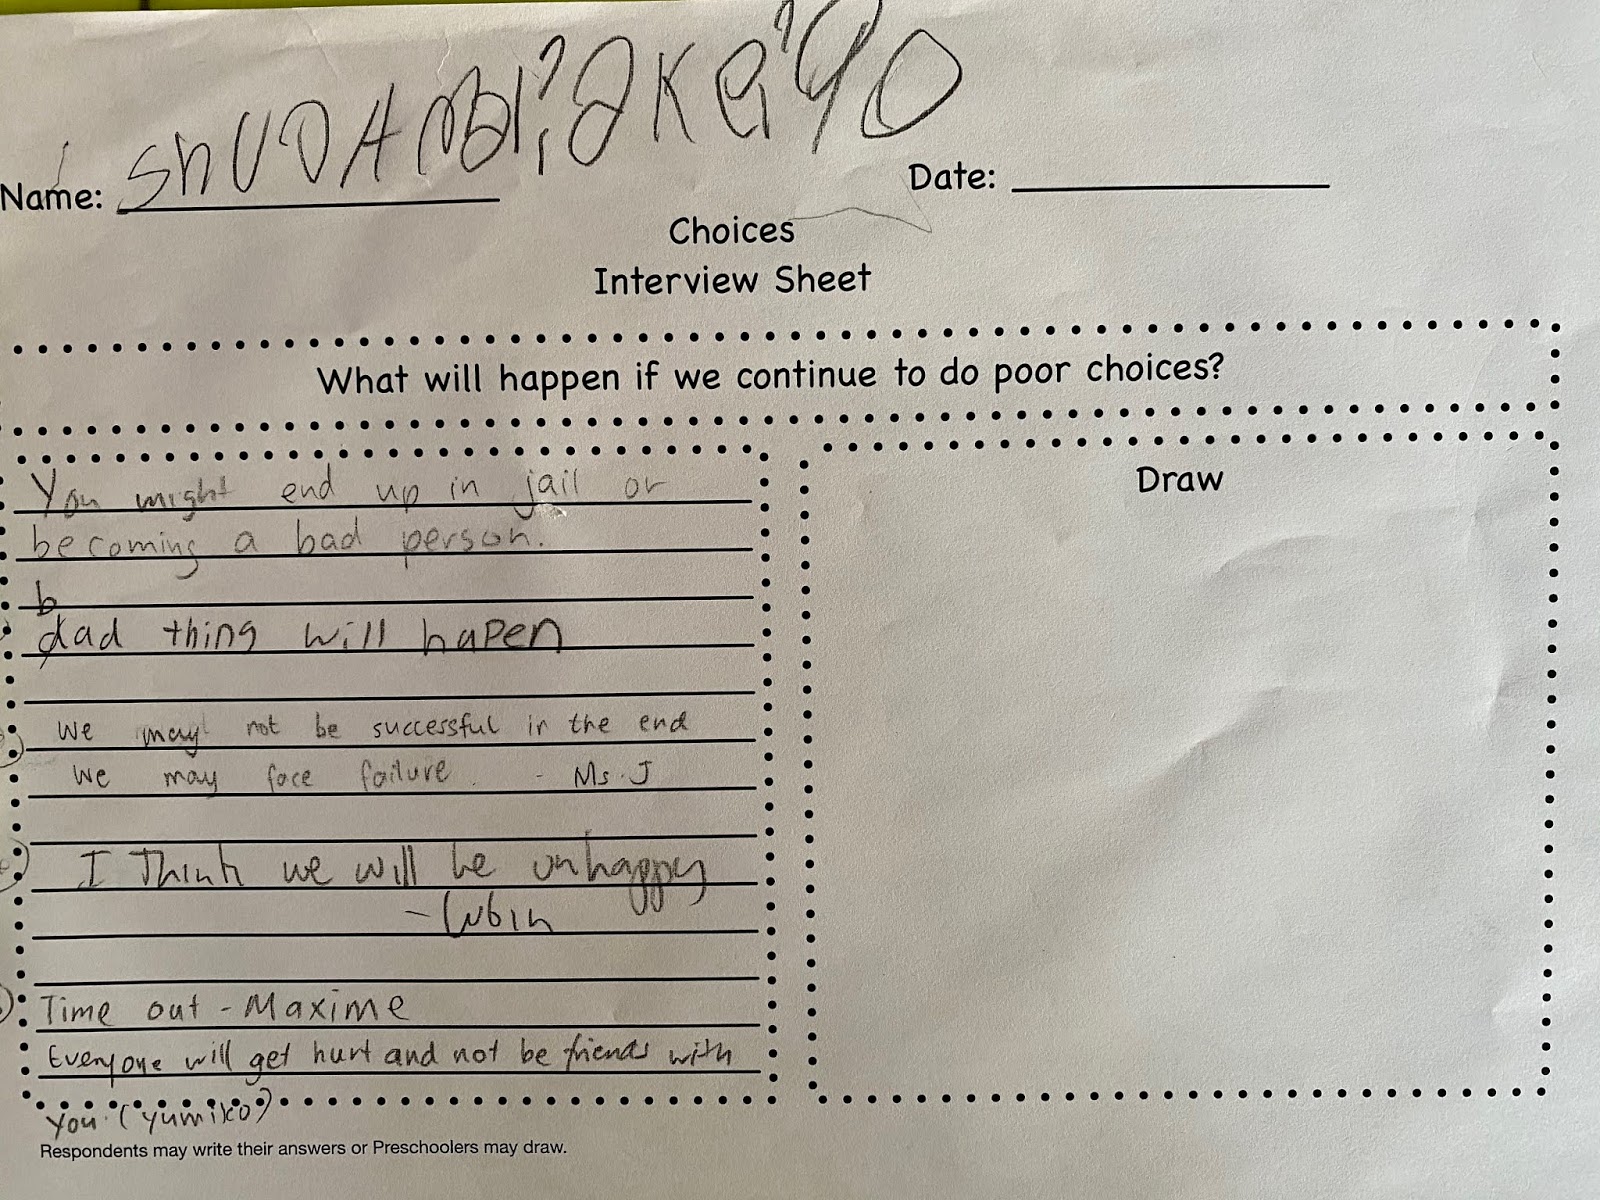 Name:
Date:
Choices
Interview Sheet
What will happen if we continue to do poor choices?
You might end up in jail or
becoming a bad person.
b
dad thing will hapen
We may not be successful in the end
We may face failure. - Ms. J
I Think we will be unhappy
- Lubin
Time out - Maxime
Everyone will get hurt and not be friends with
you. (yumiko)
Draw
Respondents may write their answers or Preschoolers may draw.